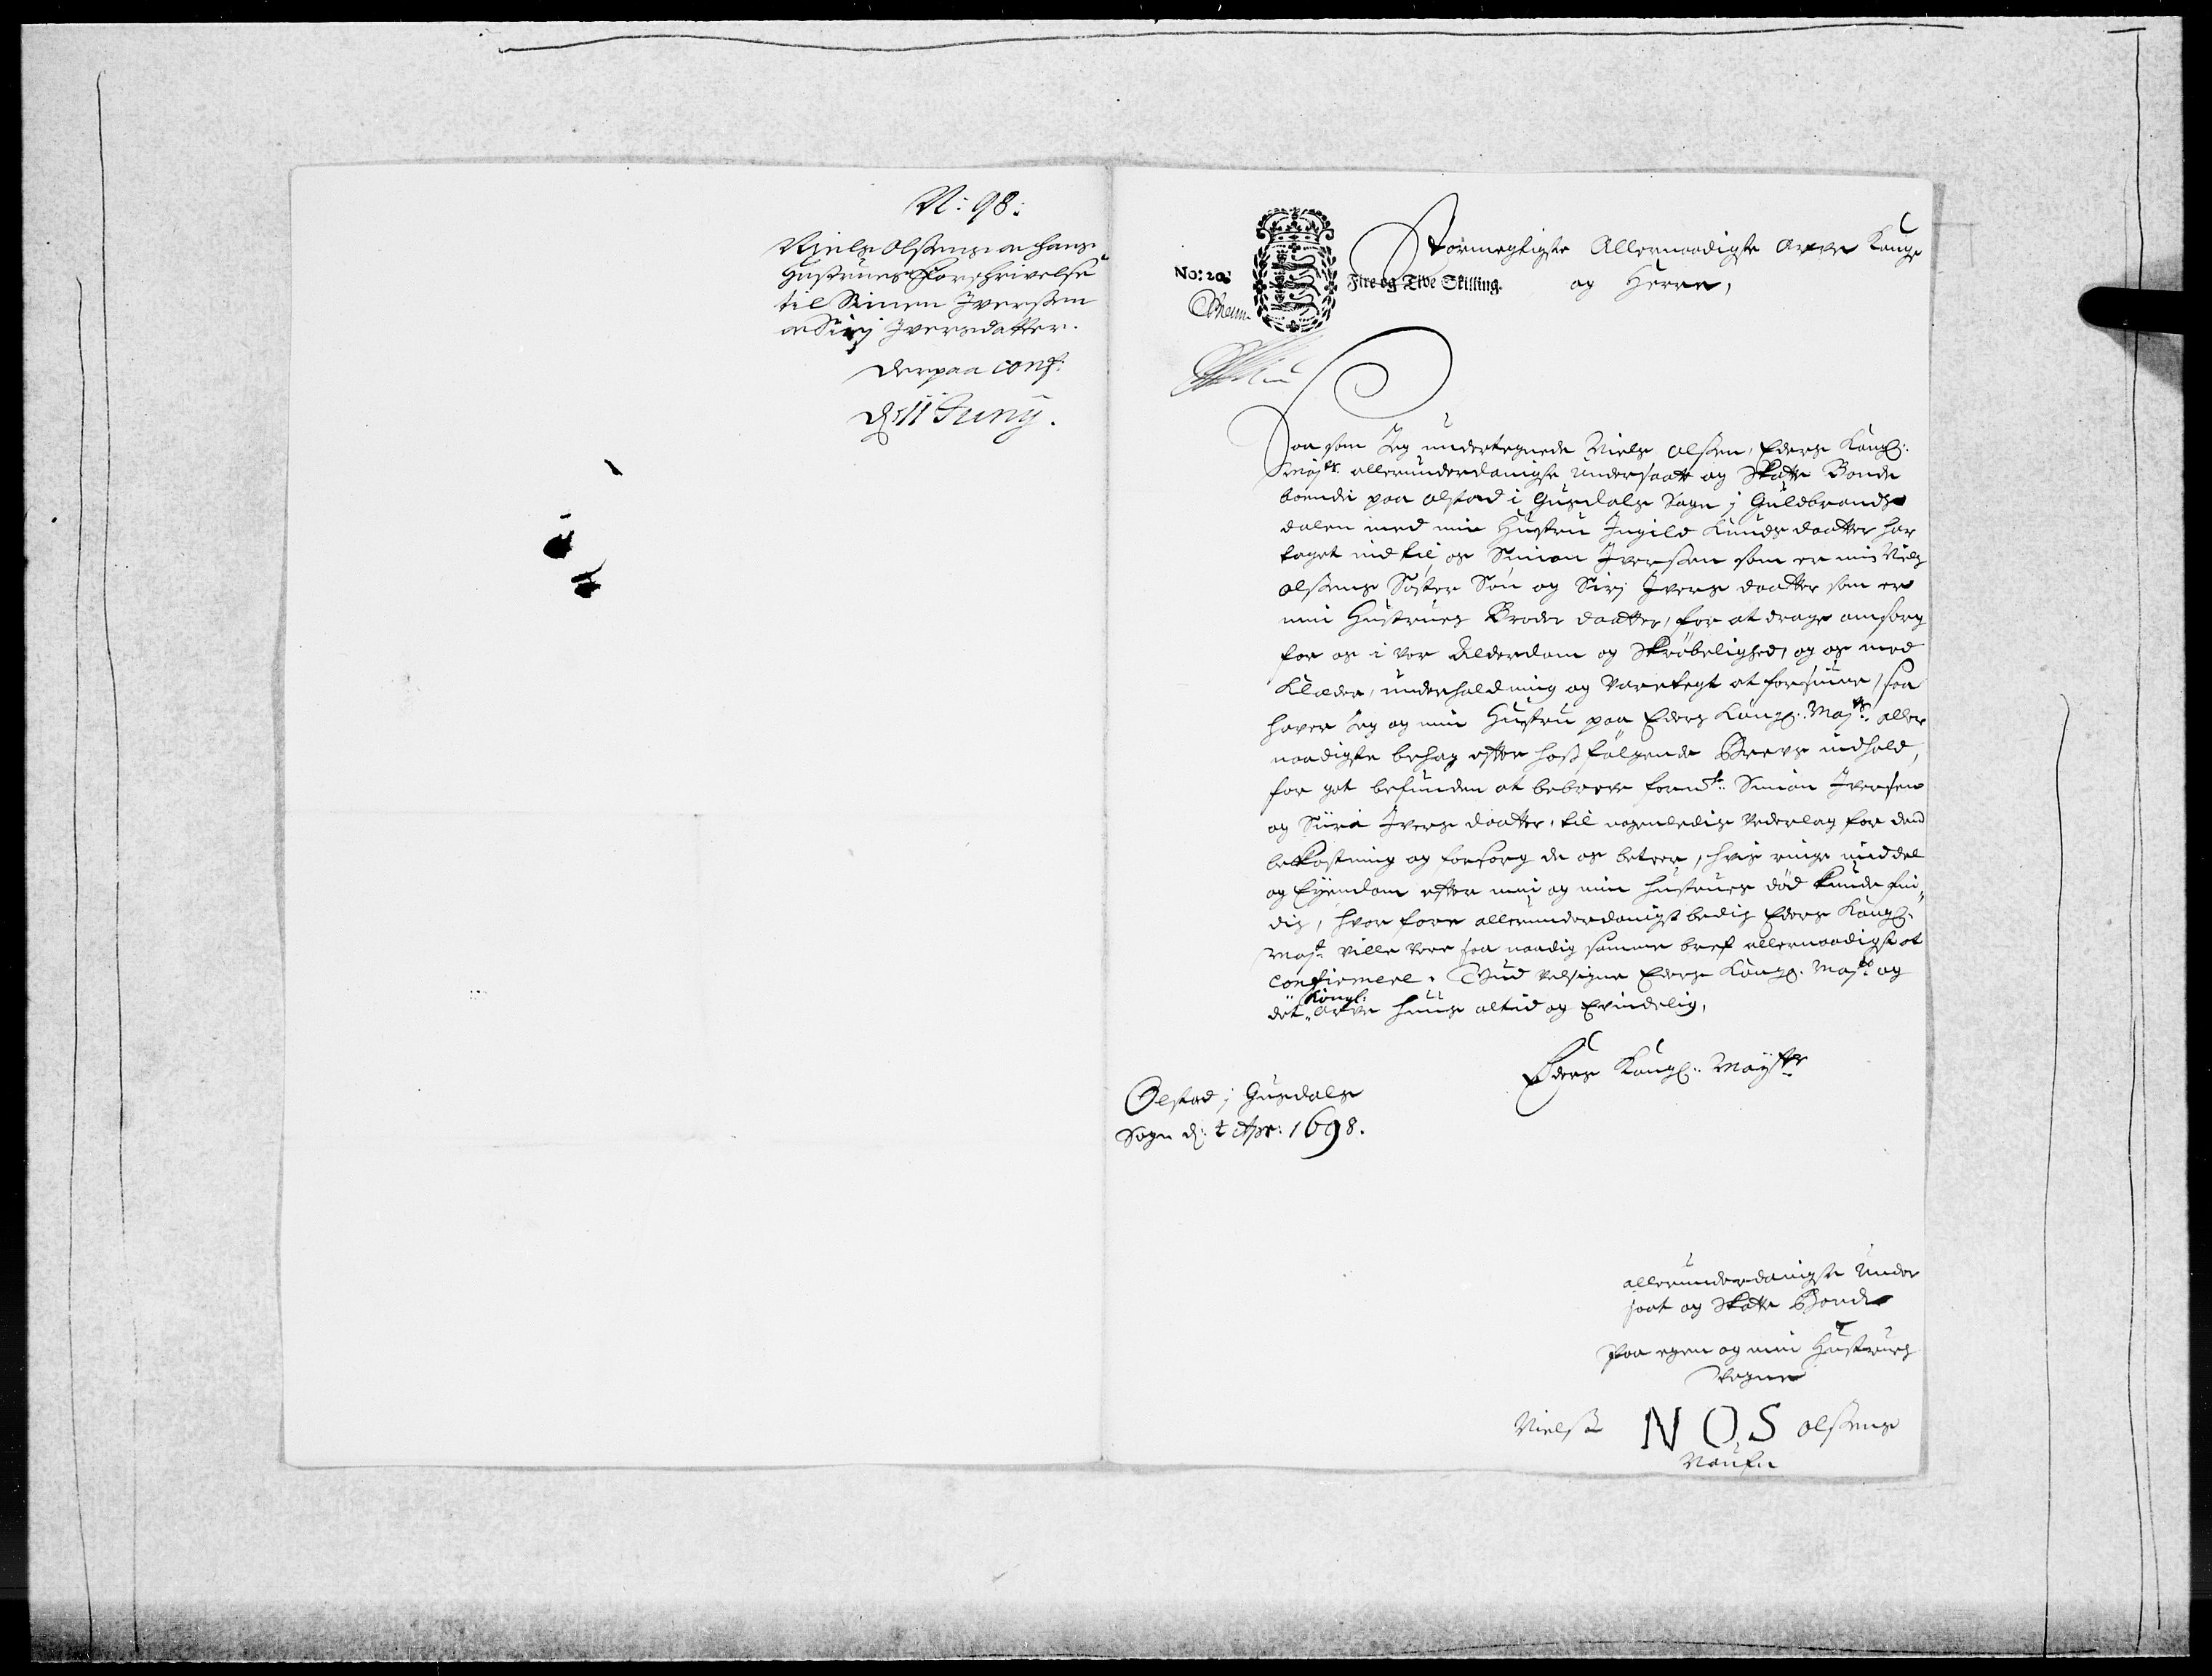 N: 98:
Niels Olsens oc hans
Hustrues Forschrifvelse
til Simen Jversen
oc Sirj Jversdatter.
Derpaa conf:
d: 11 Junij.
No: 20
Fire og Tive Skilling.
Stormegtigste Allernaadigste Arve Konge
og Herre,
Saa som Jeg undertegnede Niels Olsen, Eders Kongl:
Majts. allerunderdanigste Undersaatt og Skatte Bonde
boende paa Olstad i Gusdals Sogn j Guldbrands
dalen med min Hustru Ingild Knuds daatter har
taget ind til os Simon Jversøn som er min Niels
Olsens Søster Søn og Sirj Jvers daatter som er
min Hustrues Broder daatter, for at drage omsorg
for os i vor Alderdom og Skrøbelighed, og os med
Klæder, underholdning og Varetegt at forsiune, saa
haver Jeg og min Hustru paa Eders Kongl. Majts. aller
naadigste behag efter hoßfølgende Brevs indhold,
for got befunden at bebreve fornte. Simon Jversen
og Siiri Jvers daatter, til nogenledis Vederlag for dend
bekostning og forsorg de os beteer, hvis ringe middel
og Eyendom efter min og min hustrues død kunde fin„
dis, hvor fore allerunderdanigst bedis Eders Kongl.
Majt. ville vere saa naadig samme bref allernaadigst at
confirmere. Gud velsigne Eders Kongl. Majts. og
det Kongl: Arfve Huus altid og Evindelig,
Eders Kongl: Mayts
Olstad j Gusdals
Sogn d: Apr: 1698.
allerunderdanigste Under
saat og Skatte Bonde
Paa egen og min Hustrues
Vegne
Niels N O S Olsens
Naufn